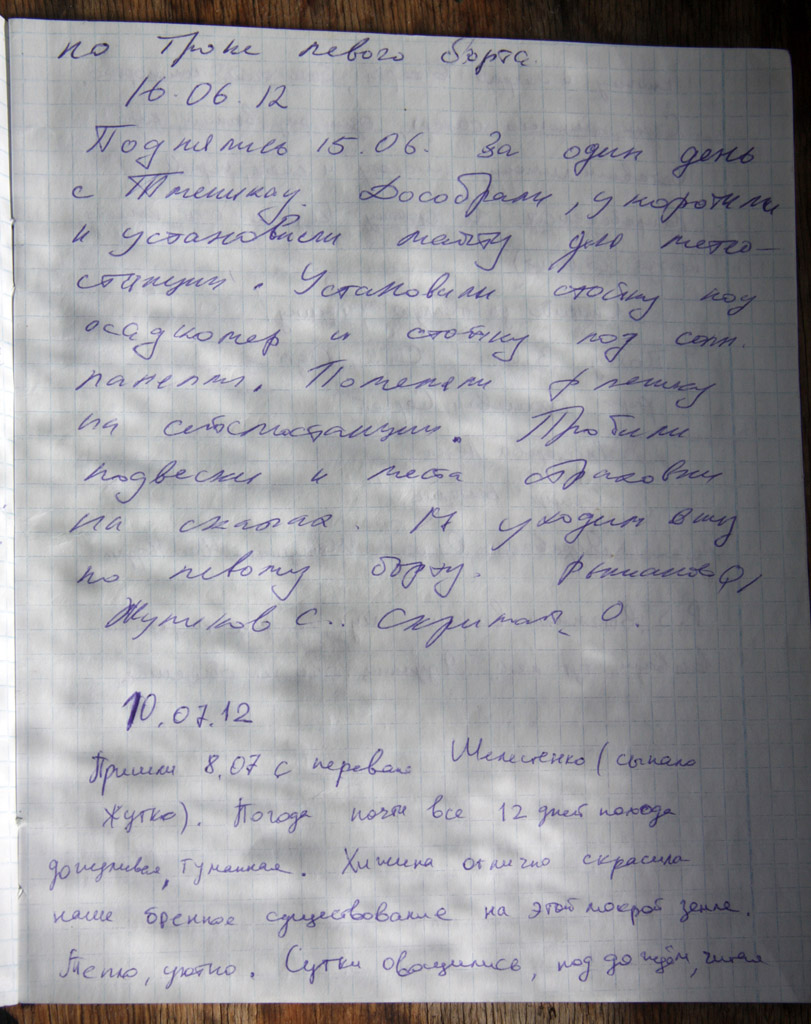 по тропе левого борта.
16.06.12
Поднялись 15.06. За один день
с Дособрали, укоротили
и установили мачту для метео-
станции. Установили стойку под
осадкомер и стойку под солн.
панели. Поменяли флешку
на сейсмостанции. Пробили
подвески и места страховки
на скалах. И уходим вниз
по левому борту.
Жупиков С.. О.
10.07.12
Пришли 8.07 с перевала Шелестенко (сыпало
жутко). Погода почти все 12 дней похода
дождливая, туманная. Хижина отлично скрасила
наше бренное существование на этой мокрой земле.
Тепло, уютно. Сутки овощились, под дождём, читая